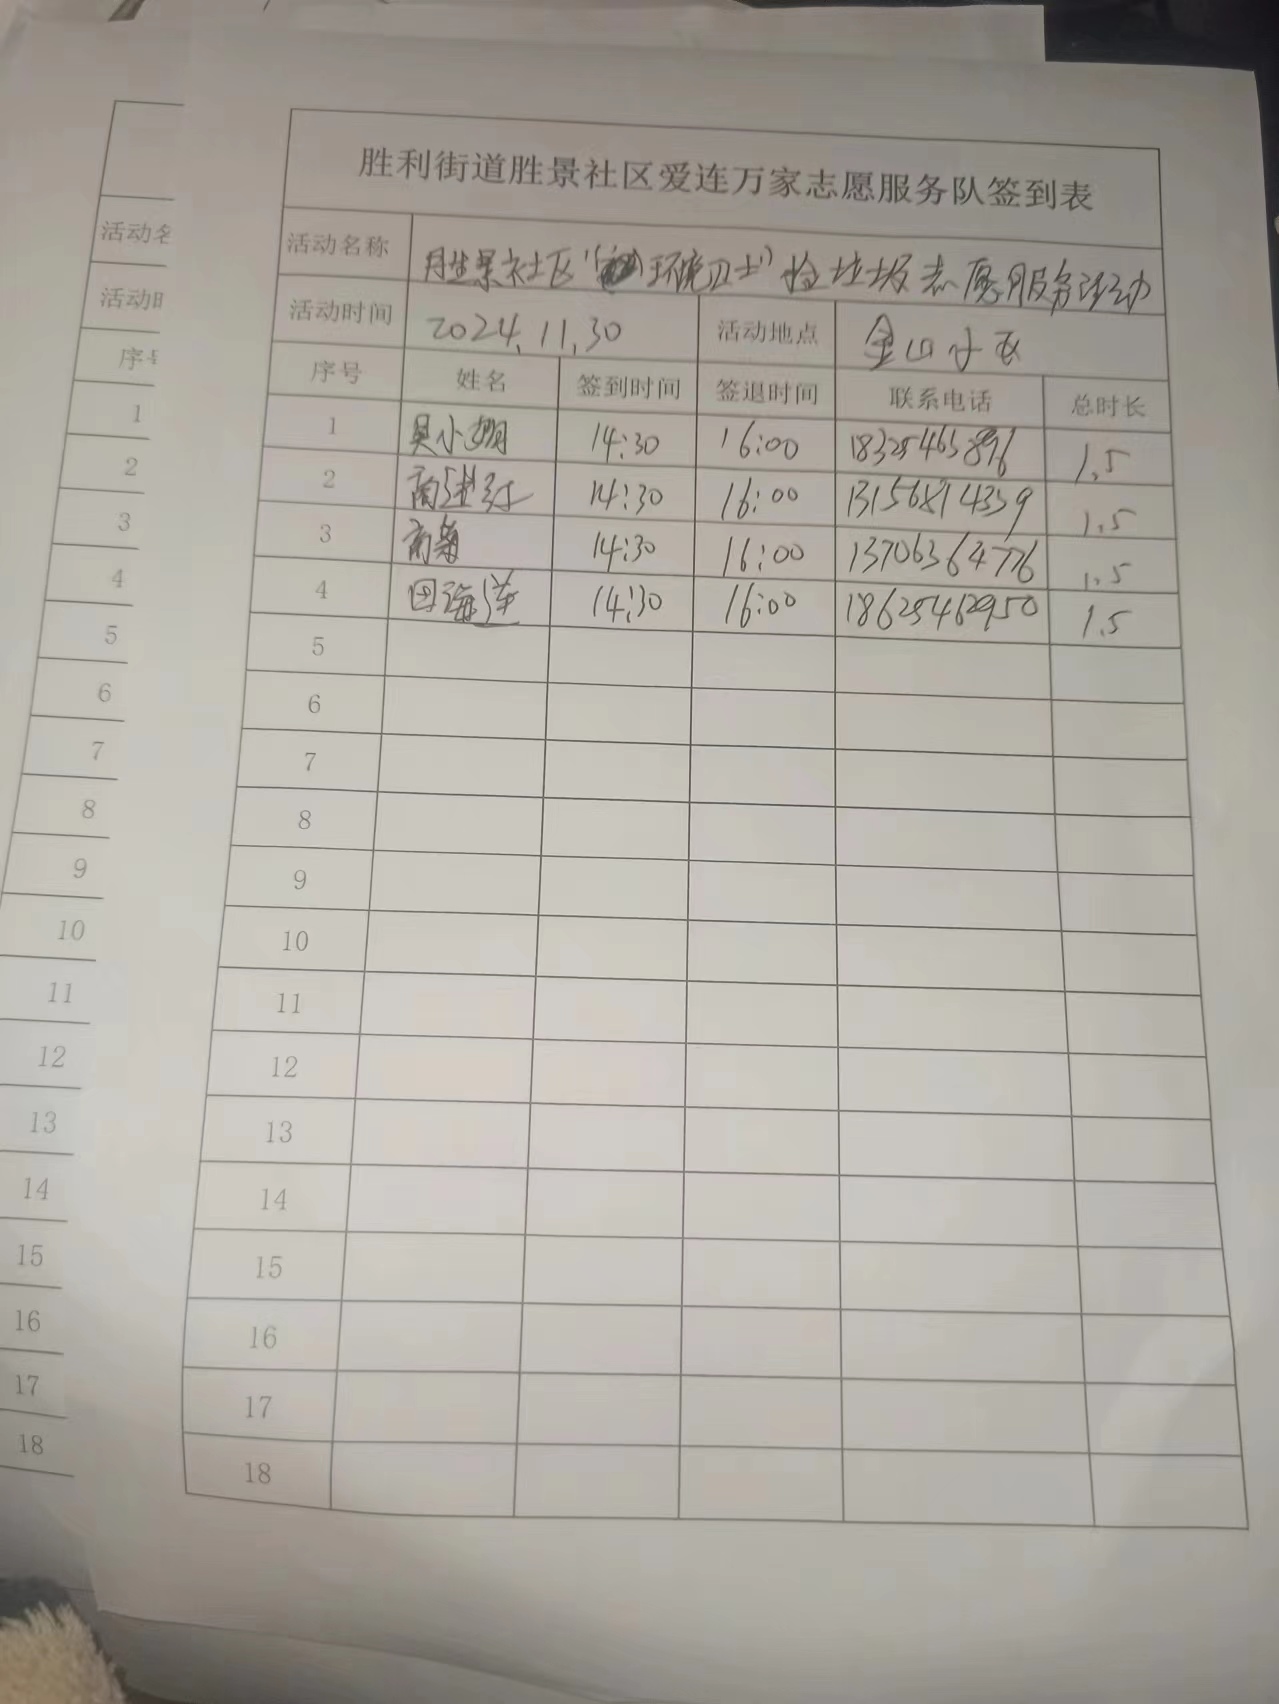 胜利街道胜景社区爱连万家志愿服务队签到表
活动名称 胜景社区“环境卫士”捡垃圾志愿服务活动
活动时间 2024.11.30 活动地点 金山小区
序号 姓名 签到时间 签退时间 联系电话 总时长
1 吴小翔 14:30 16:00 18325463896 1.5
2 商进红 14:30 16:00 13156814359 1.5
3 商菊 14:30 16:00 13706364776 1.5
4 田海莲 14:30 16:00 18625462950 1.5
5
6
7
8
9
10
11
12
13
14
15
16
17
18
活动名
活动时
序号
1
2
3
4
5
6
7
8
9
10
11
12
13
14
15
16
17
18